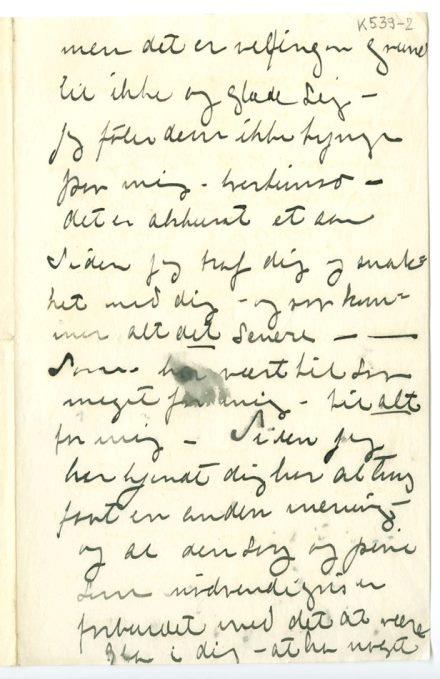 K539-2
men det er velingen grund
til ikke og glæde sig –
Jeg føler dem ikke tynge
paa mig –
det er akkurat et aar
siden jeg traf dig og snak=
ket med dig – og saa kom=
mer alt det senere – —
Som har vært til saa
meget for mig – til alt
for mig – Siden jeg
har kjendt dig har alting
faat en anden mening –
og al den sorg og pine
som nødvendigvis er
forbundet med det at være
gla i dig – at ha noget